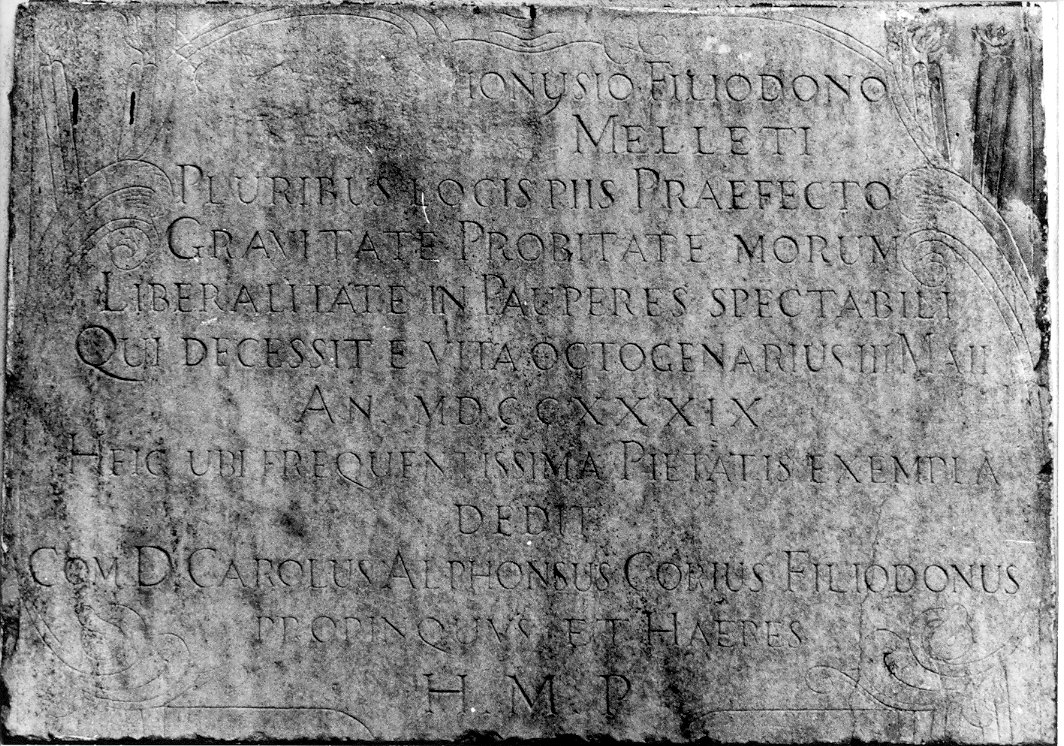 IONUSIO FILIODONO
MELLETI
PLURIBUS LOCIS PIIS PRAEFECTO
GRAVITATE PROBITATE MORUM
LIBERALITATE IN PAUPERES SPECTABILI
QUI DECESSIT E VITA OCTOGENARIUS III MAII
AN. MDCCXXXIX
HEIC UBI FREQUENTISSIMA PIETATIS EXEMPLA
DEDIT
COM D CAROLUS ALPHONSUS GOBIUS FILIODONUS
PROPINQUVS ET HAERES
H. M. P